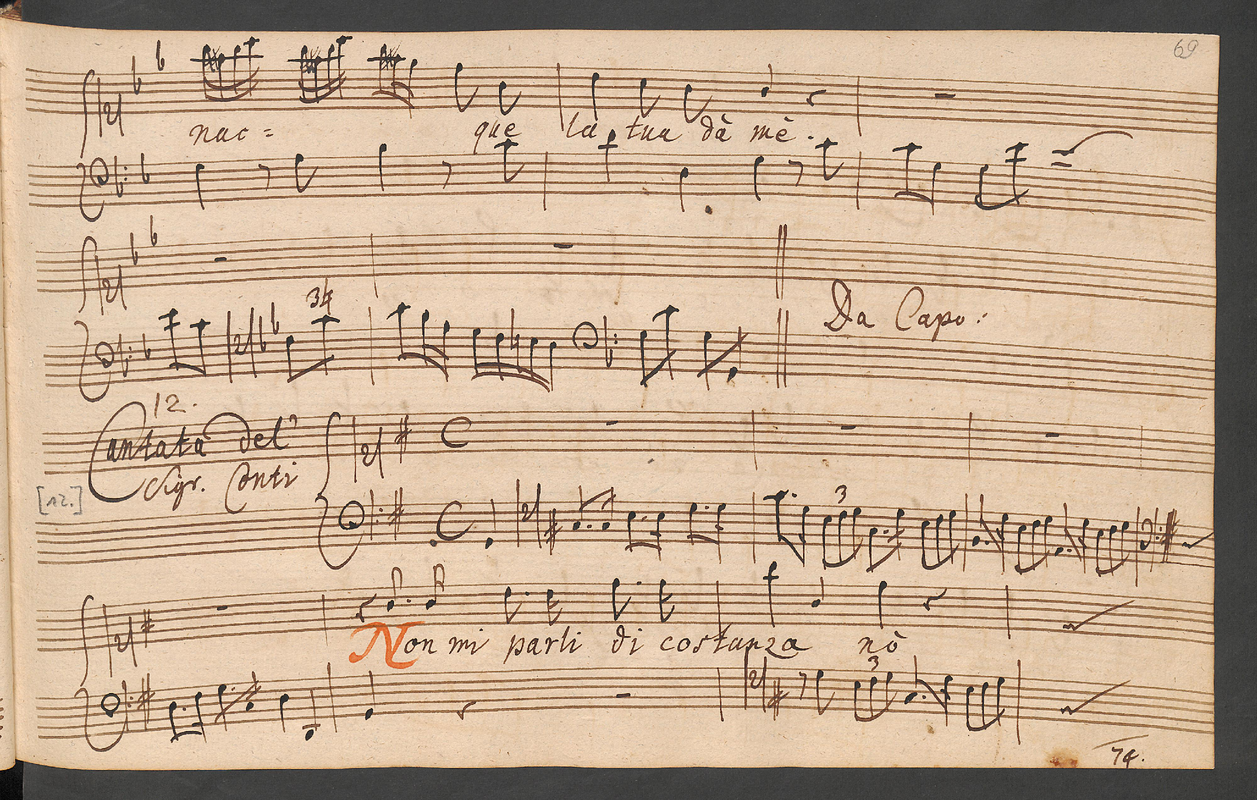 69
nac = que la tua dà mè.
34
Da Capo:
12.
Cantata del
Sigr. Conti
[12.]
3
Non mi parli di costanza nò
3
74.